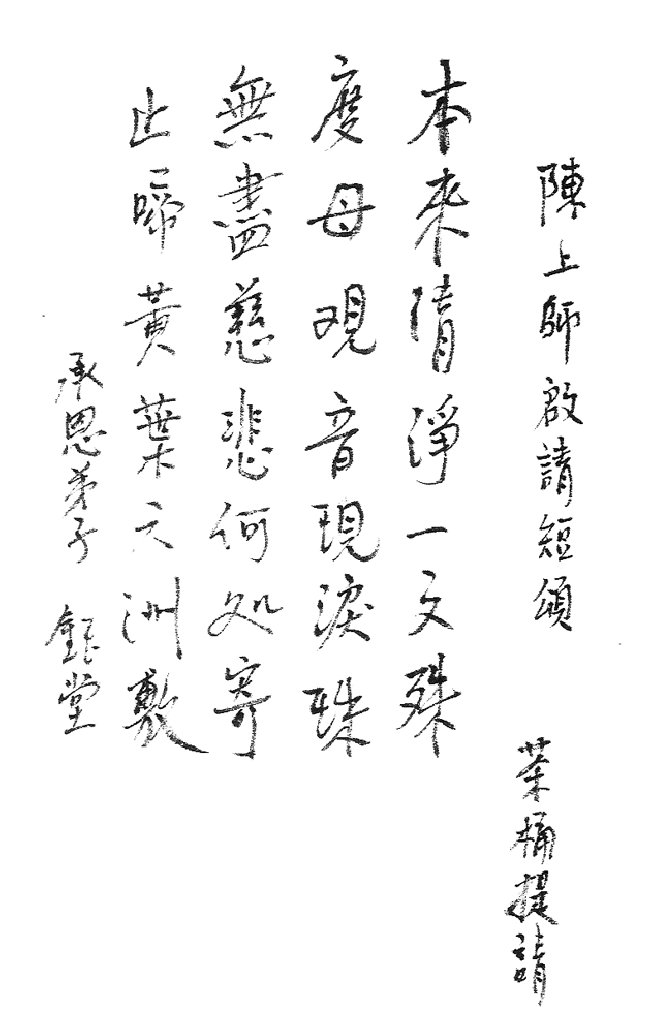 陳上師啟請短頌
茶桶提請
本來清淨一文殊
度母观音現淚珠
無盡慈悲何处寄
止啼黃葉六洲敷
承恩弟子 鈺堂